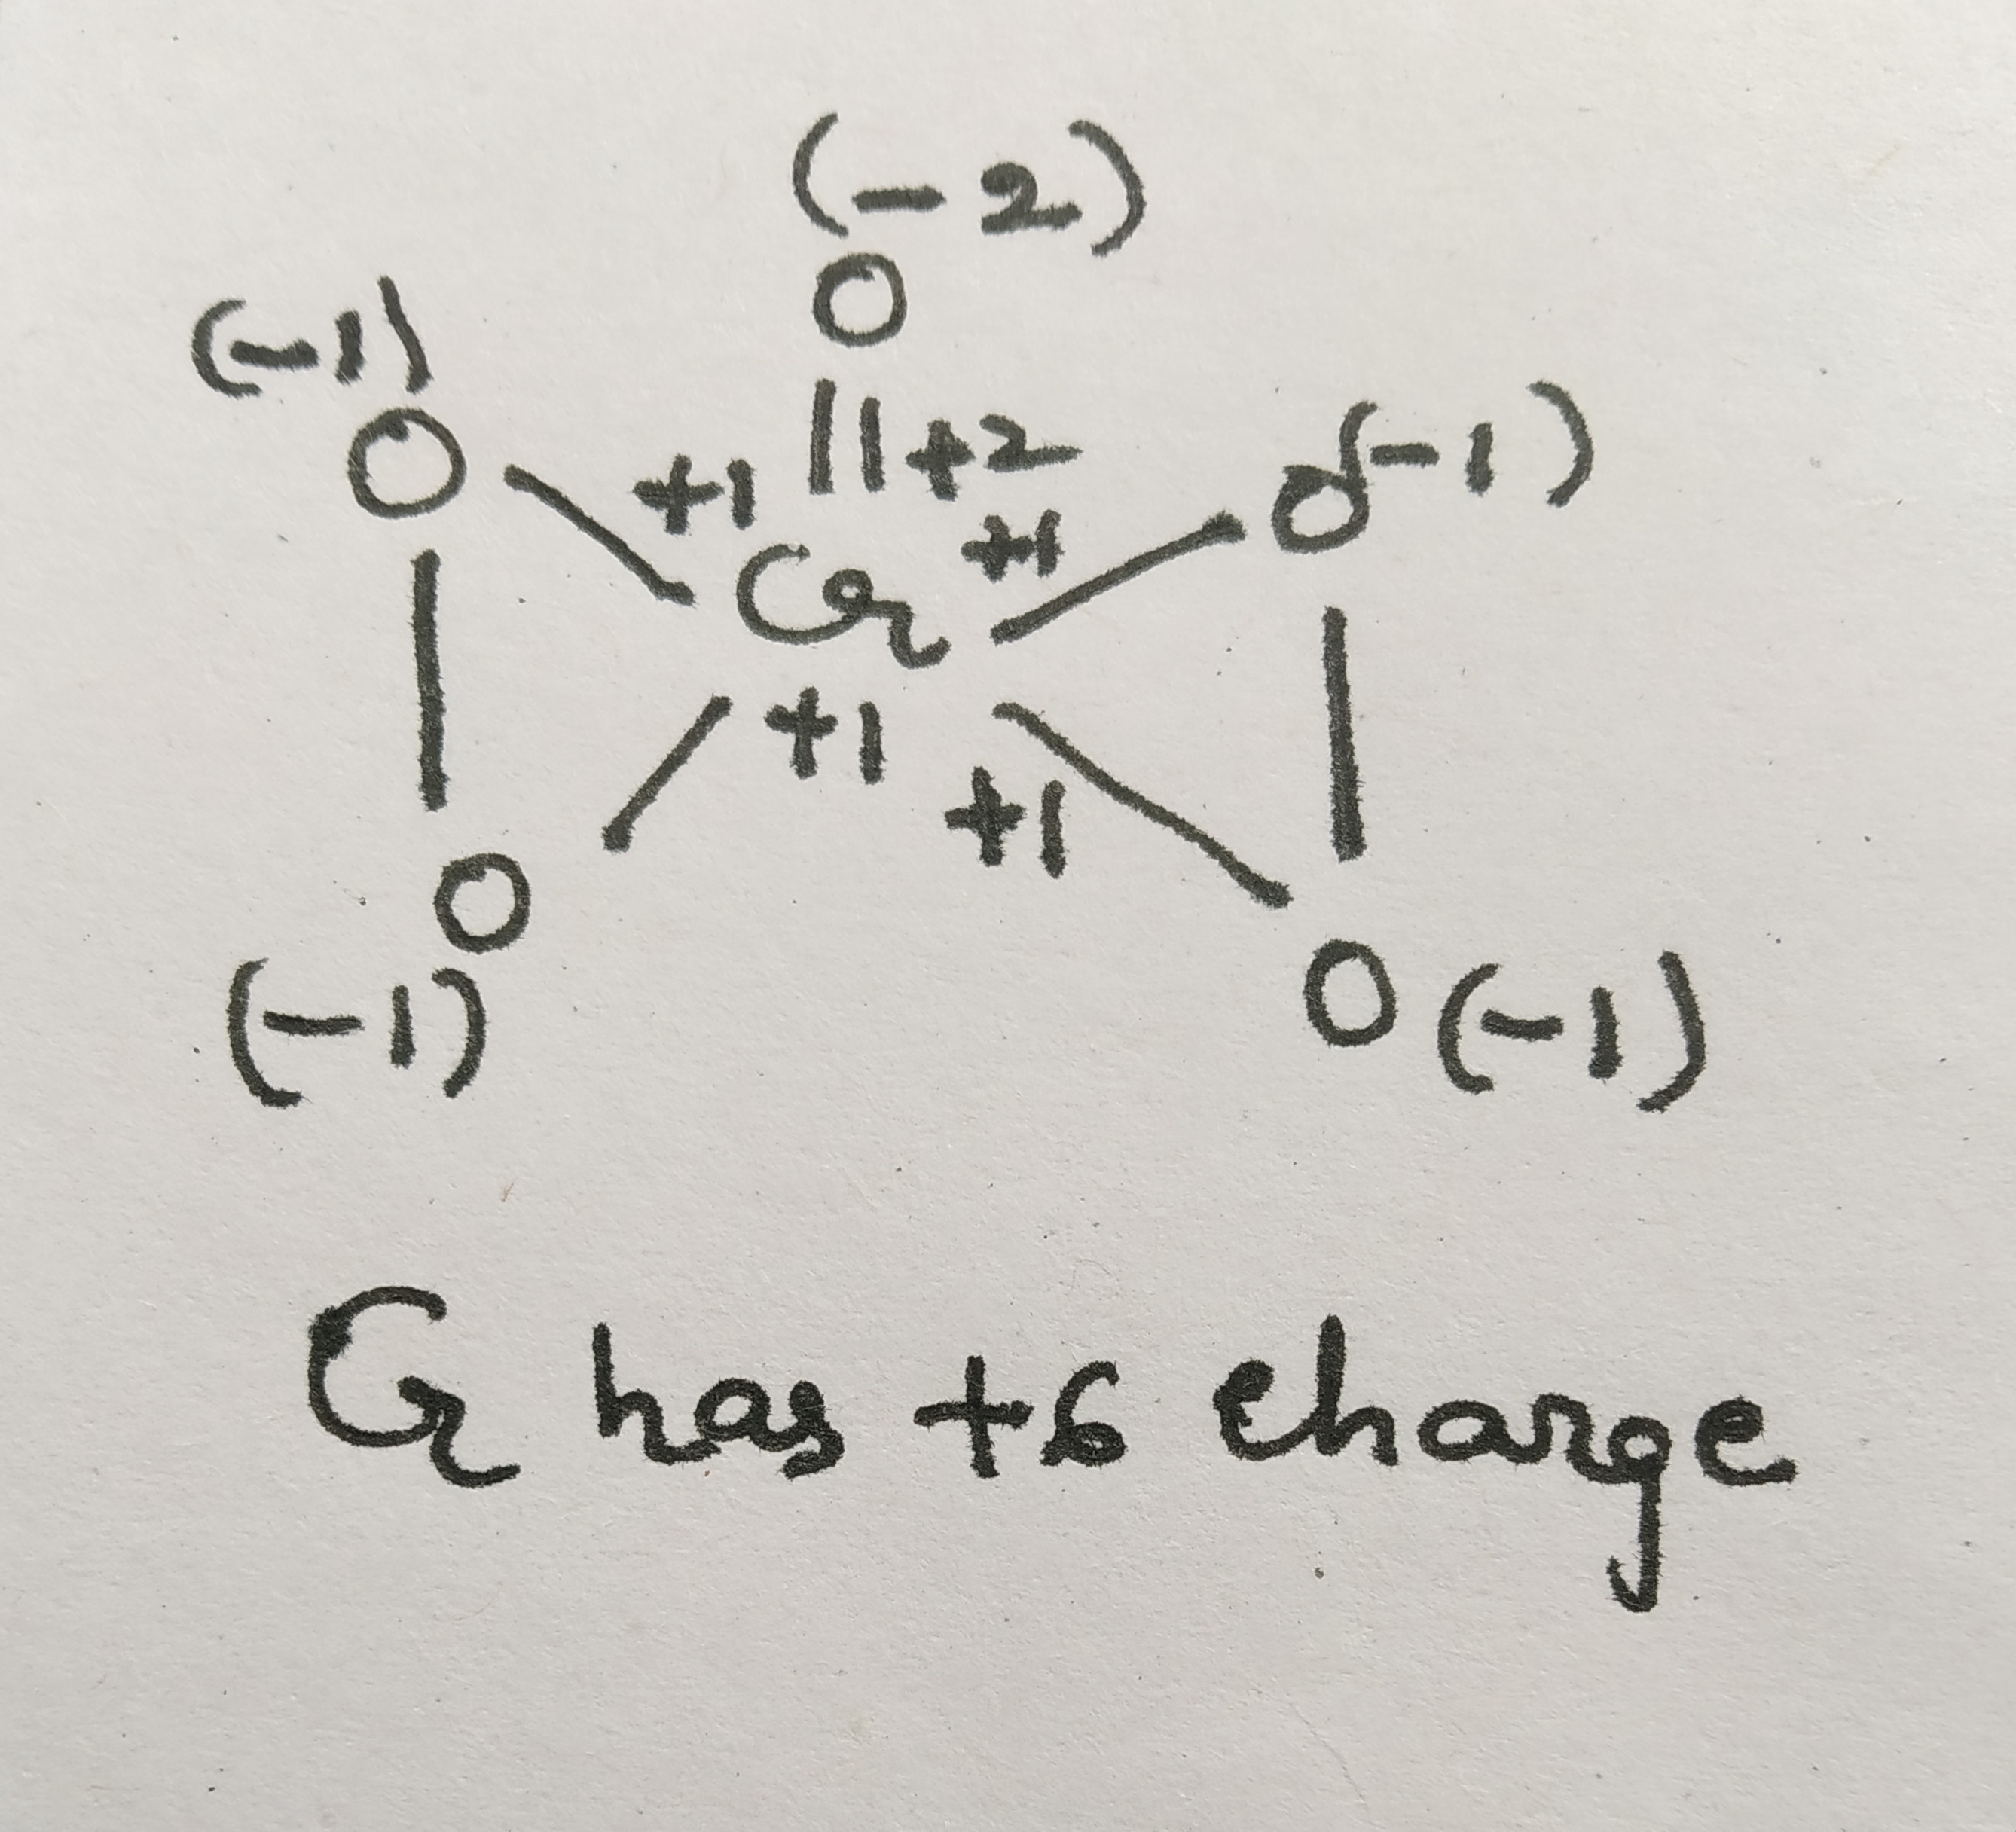 (-2)
(-1) O
O || +2 O (-1)
+1 Cr +1
+1
+1
O
(-1) O (-1)
Cr has +6 charge